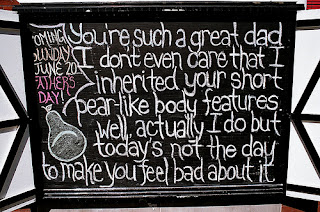 OMING!
SUNDAY
JUNE 20
ATHER'S
DAY!
You're such a great dad
I dont even care that I
inherited your short
pear-like body features.
Well, actually I do but
today's not the day
to make you feel bad about it.